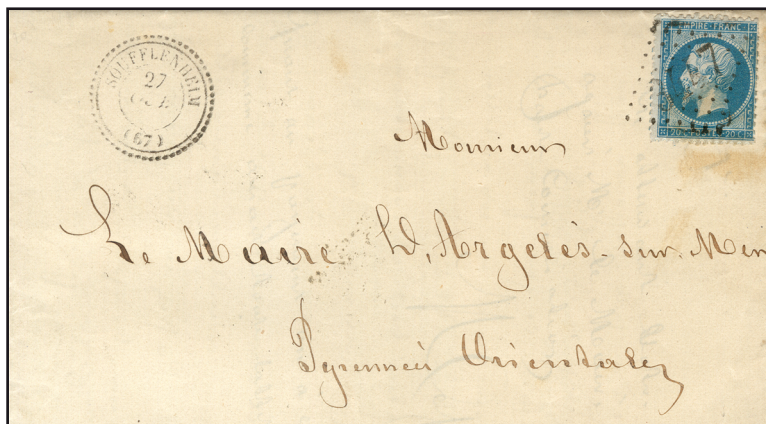 SOUFFLENHEIM
27
(67)
EMPIRE FRANC
20 C POSTES 20 C
Monsieur
Le Maire D'Argelès-sur-Mer
Pyrennées Orientales